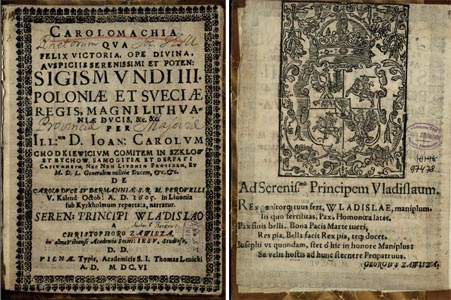 CAROLOMACHIA
QVA
FELIX VICTORIA, OPE DIVINA,
AVSPICIIS SERENISSIMI ET POTEN:
SIGISMVNDI III.
POLONIÆ ET SVECIÆ
REGIS, MAGNI LITHVA-
NIÆ DVCIS, &c. &c.
PER
ILL. D. IOAN: CAROLVM
CHODKIEWICIVM COMITEM IN SZKLOW
ET BYCHOW, SAMOGITIÆ ET DERPATI
M. D. L. Generalem militiæ Ducem, &c. &c.
DE
CAROLO DVCE SVDERMANNIÆ
V. Kalend. Octob: A. D. 1605. in Livonia
sub Kyrkholmum reportata, narratur.
SEREN: PRINCIPI WLADISLAO
A
CHRISTOPHORO ZAWISZA
in alma Vilnensi Academia Societ: IESV, Studioso,
D. D.
VILNÆ Typis, Academicis S. I. Thomas Lewicki
A. D. MDCVI
Ad Serenis Principem Vladislaum.
REx genitor quii suus fert, WLADISLAE, maniplum
In quo fertilitas, Pax, Honorq; latet.
Pax finis belli. Bona Pacis Marte tueri,
Res pia, Bella facit Rex pia, teq; docet.
Iosephi vt quondam, stet sic in honore Maniplus
GEORGIVS ZAWISZA.